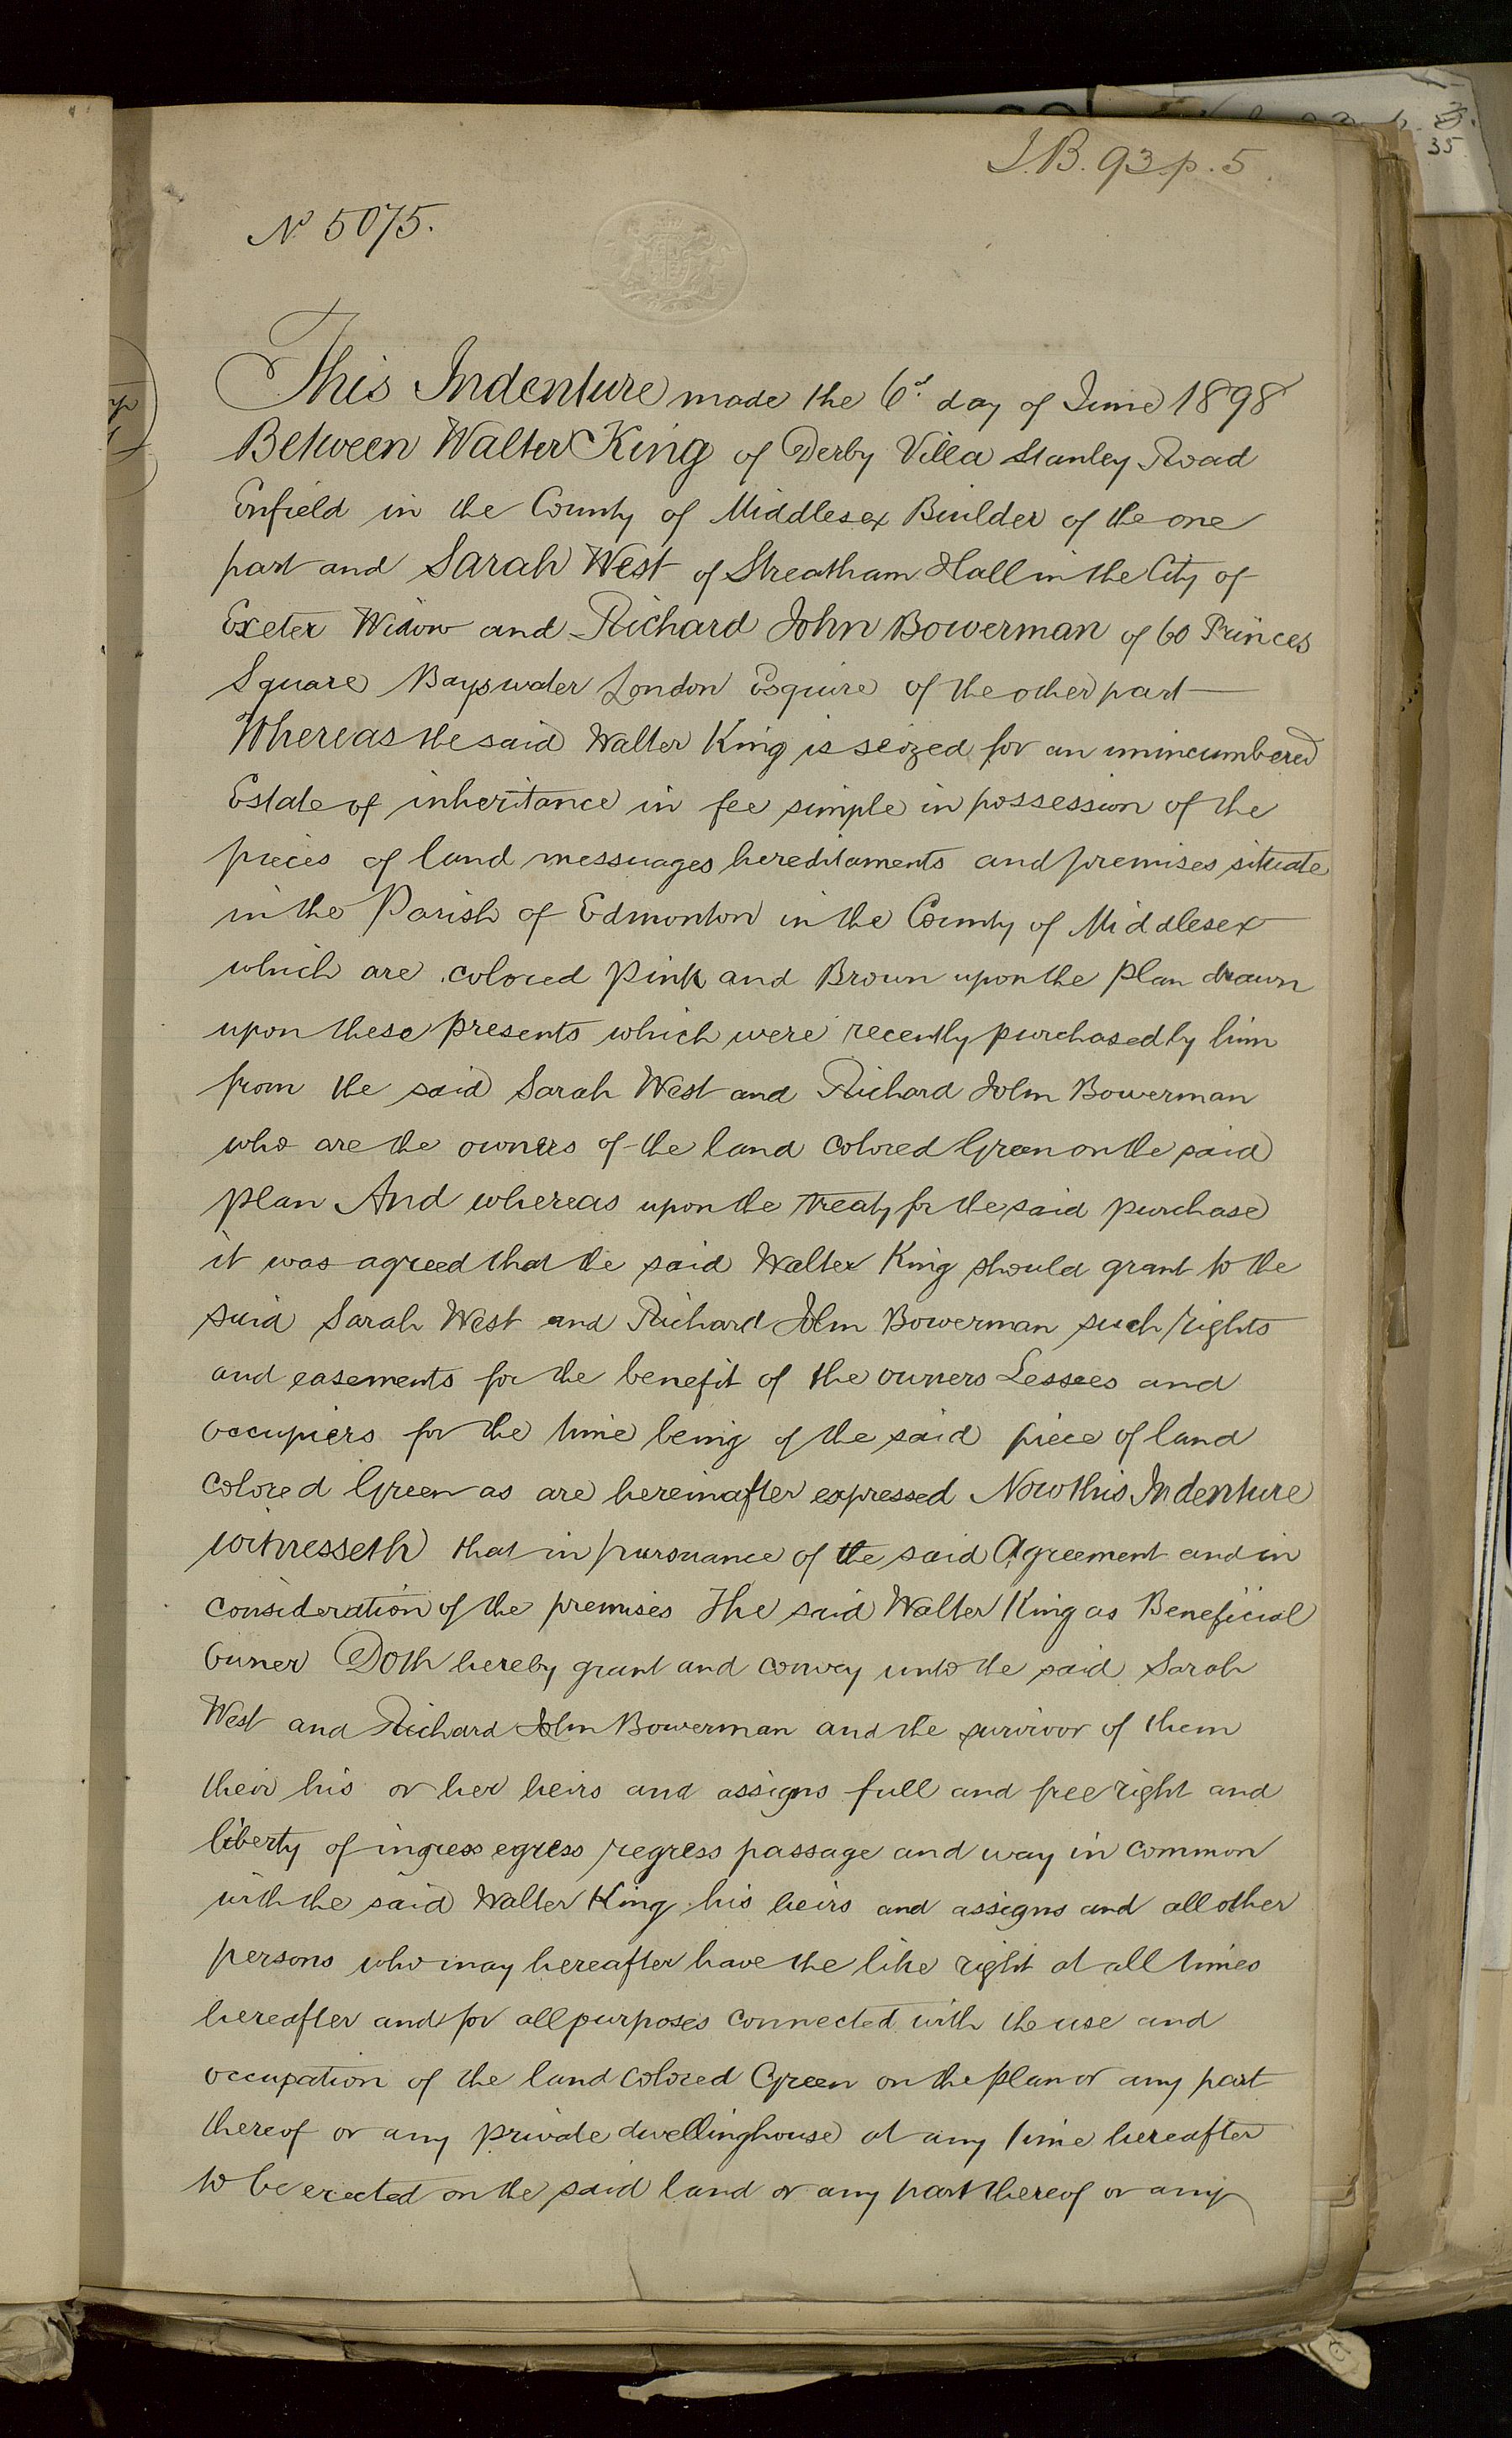 I.B. 93 p. 5.
35
No 5075.
This Indenture made the 6th day of June 1898
Between Walter King of Derby Villa Stanley Road
Enfield in the County of Middlesex Builder of the one
part and Sarah West of Streatham Hall in the City of
Exeter Widow and Richard John Bowerman of 60 Princes
Square Bayswater London Esquire of the other part
Whereas the said Walter King is seized for an unincumbered
Estate of inheritance in fee simple in possession of the
pieces of land messuages hereditaments and premises situate
in the Parish of Edmonton in the County of Middlesex
which are colored Pink and Brown upon the Plan drawn
upon these presents which were recently purchased by him
from the said Sarah West and Richard John Bowerman
who are the owners of the land colored Green on the said
plan And whereas upon the treaty for the said purchase
it was agreed that the said Walter King should grant to the
said Sarah West and Richard John Bowerman such rights
and easements for the benefit of the owners Lessees and
occupiers for the time being of the said piece of land
colored Green as are hereinafter expressed Now this Indenture
witnesseth that in pursuance of the said Agreement and in
consideration of the premises The said Walter King as Beneficial
Owner Doth hereby grant and convey unto the said Sarah
West and Richard John Bowerman and the survivor of them
their his or her heirs and assigns full and free right and
liberty of ingress egress regress passage and way in common
with the said Walter King his heirs and assigns and all other
persons who may hereafter have the like right at all times
hereafter and for all purposes connected with the use and
occupation of the land colored Green on the plan or any part
thereof or any private dwellinghouse at any time hereafter
to be erected on the said land or any part thereof or any